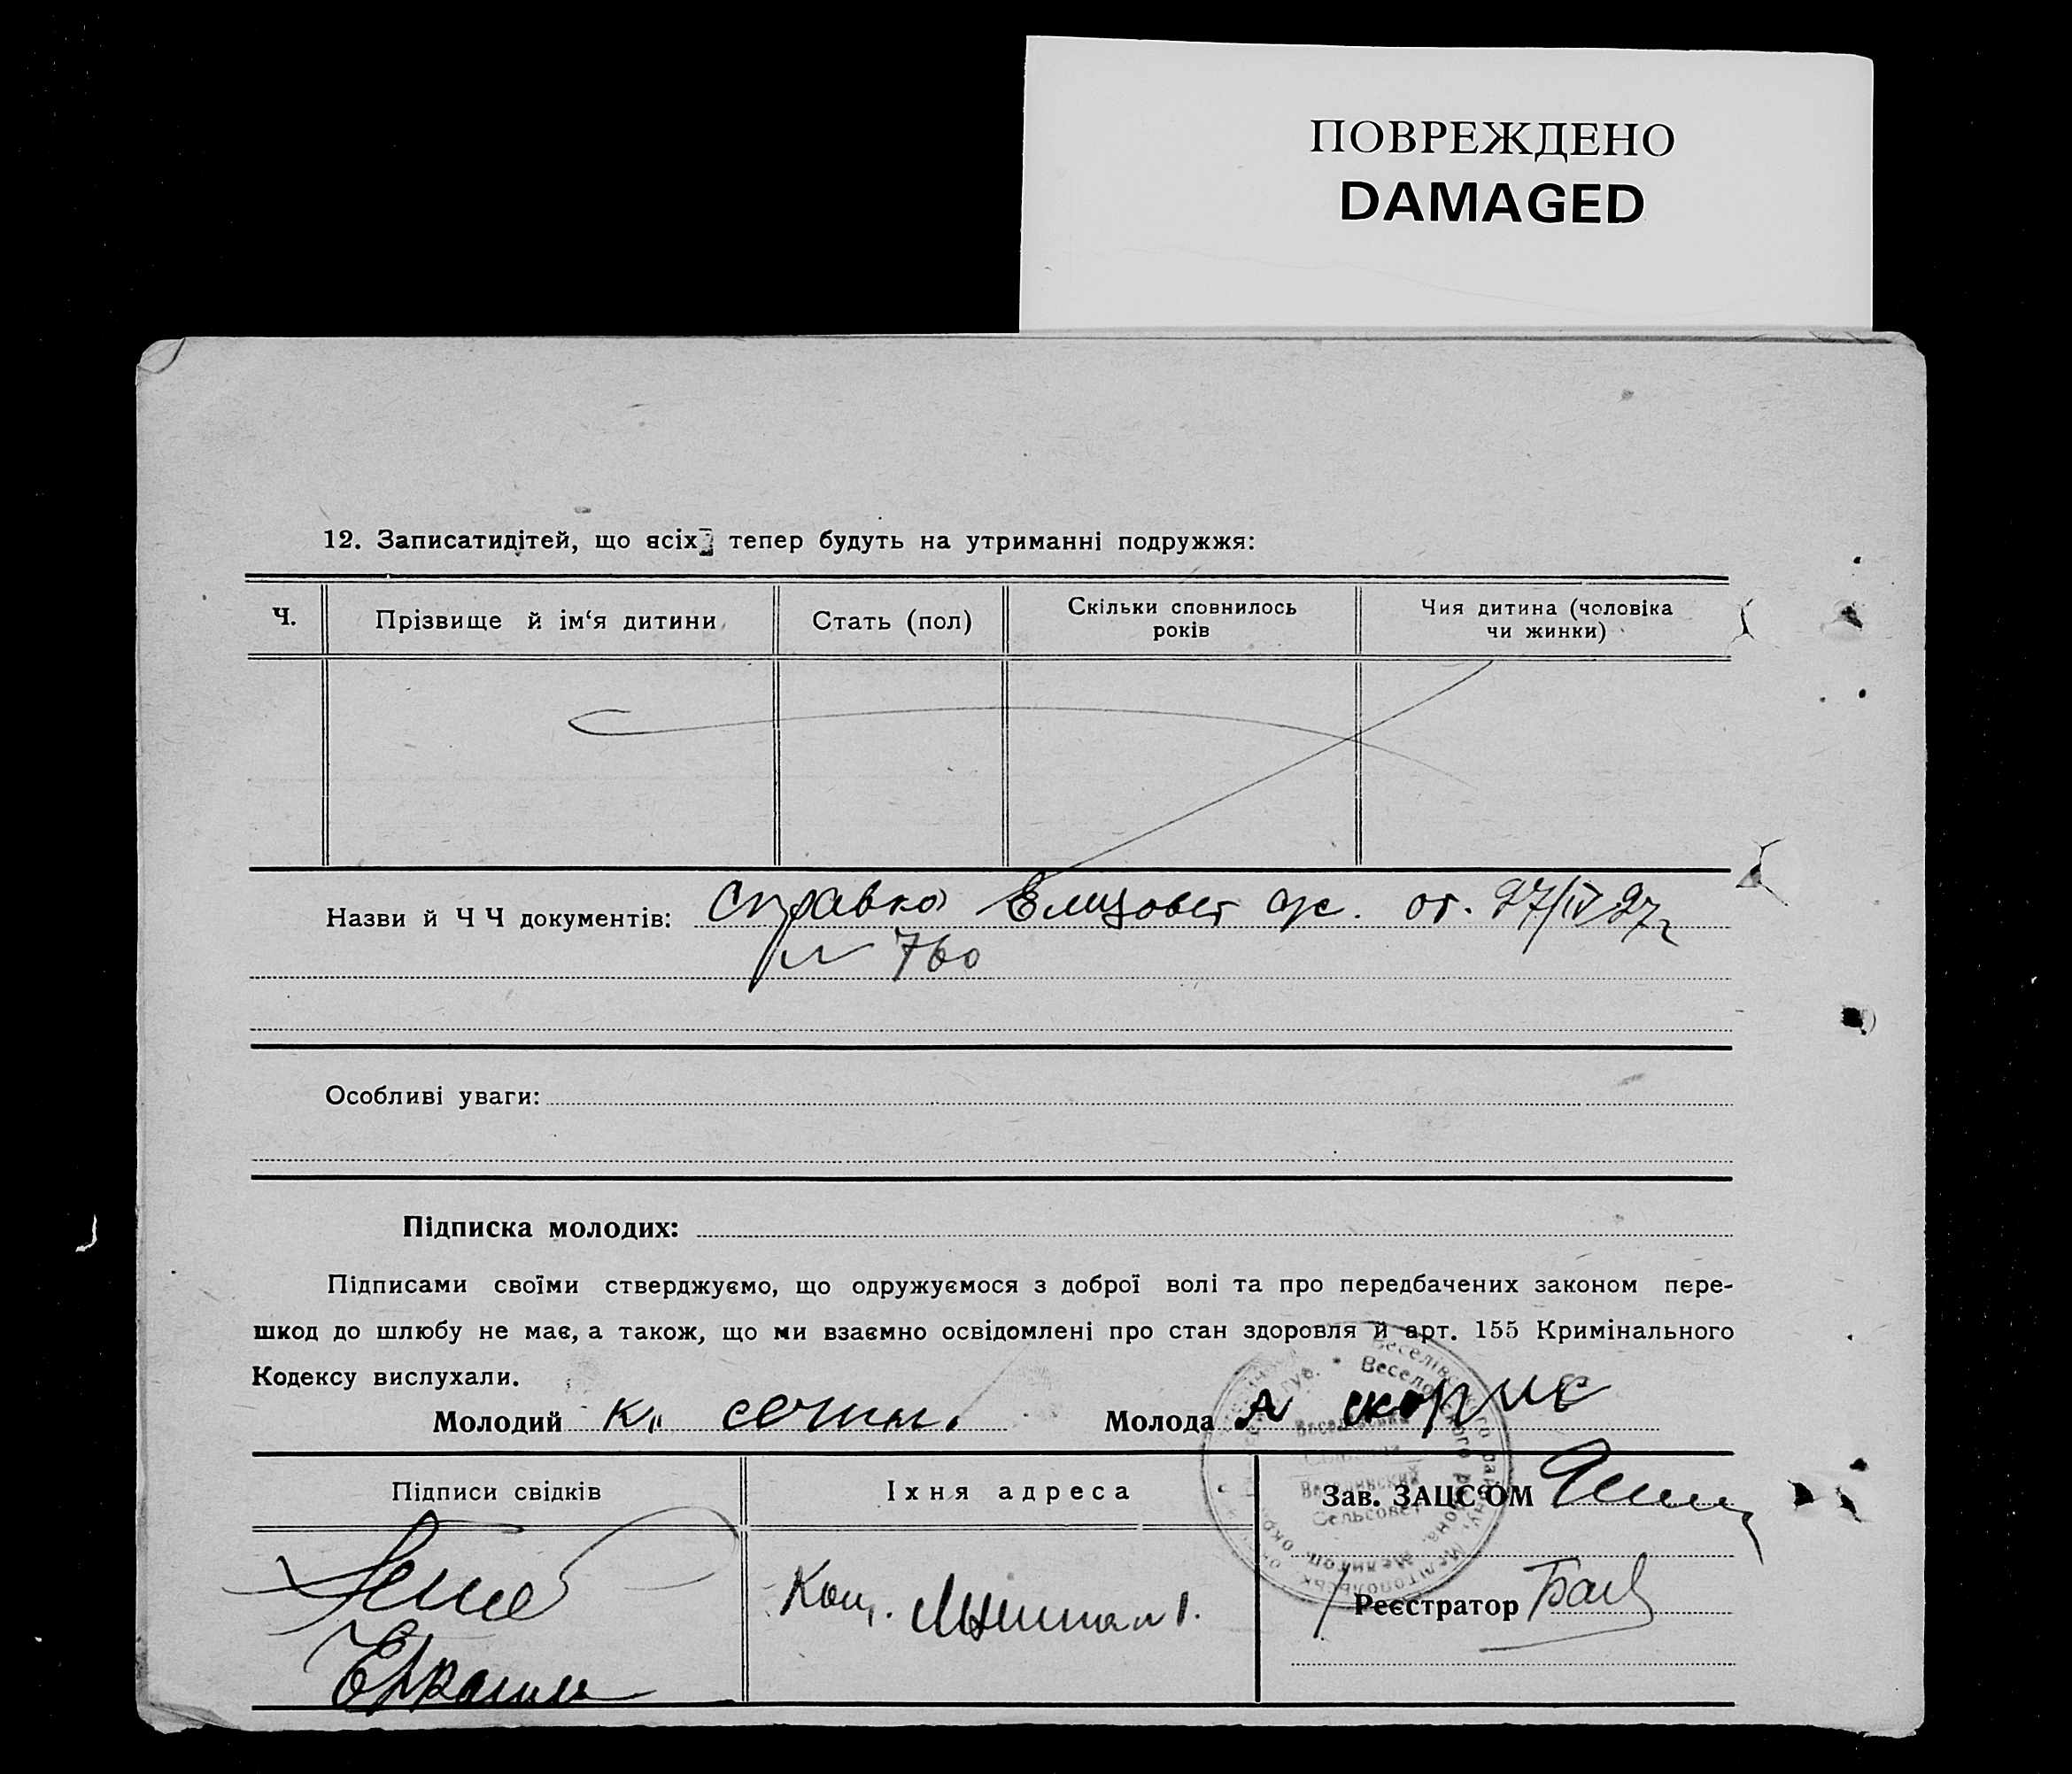 ПОВРЕЖДЕНО
DAMAGED
12. Записатидітей, що всіх тепер будуть на утриманні подружжя:
Ч.
Прізвище й ім‘я дитини
Стать (пол)
Скільки сповнилось
років
Чия дитина (чоловіка
чи жинки)
Назви й Ч Ч документів: Справка от. 27/IV 27г
N 760
Особливі уваги:
Підписка молодих:
Підписами своїми стверджуємо, що одружуємося з доброї волі та про передбачених законом пере-
шкод до шлюбу не має, а також, що ми взаємно освідомлені про стан здоровля й арт. 155 Кримінального
Кодексу вислухали.
Молодий
Молода А
Підписи свідків
Їхня адреса
Зав. ЗАЦС‘ОМ
Реєстратор
Сельсовет